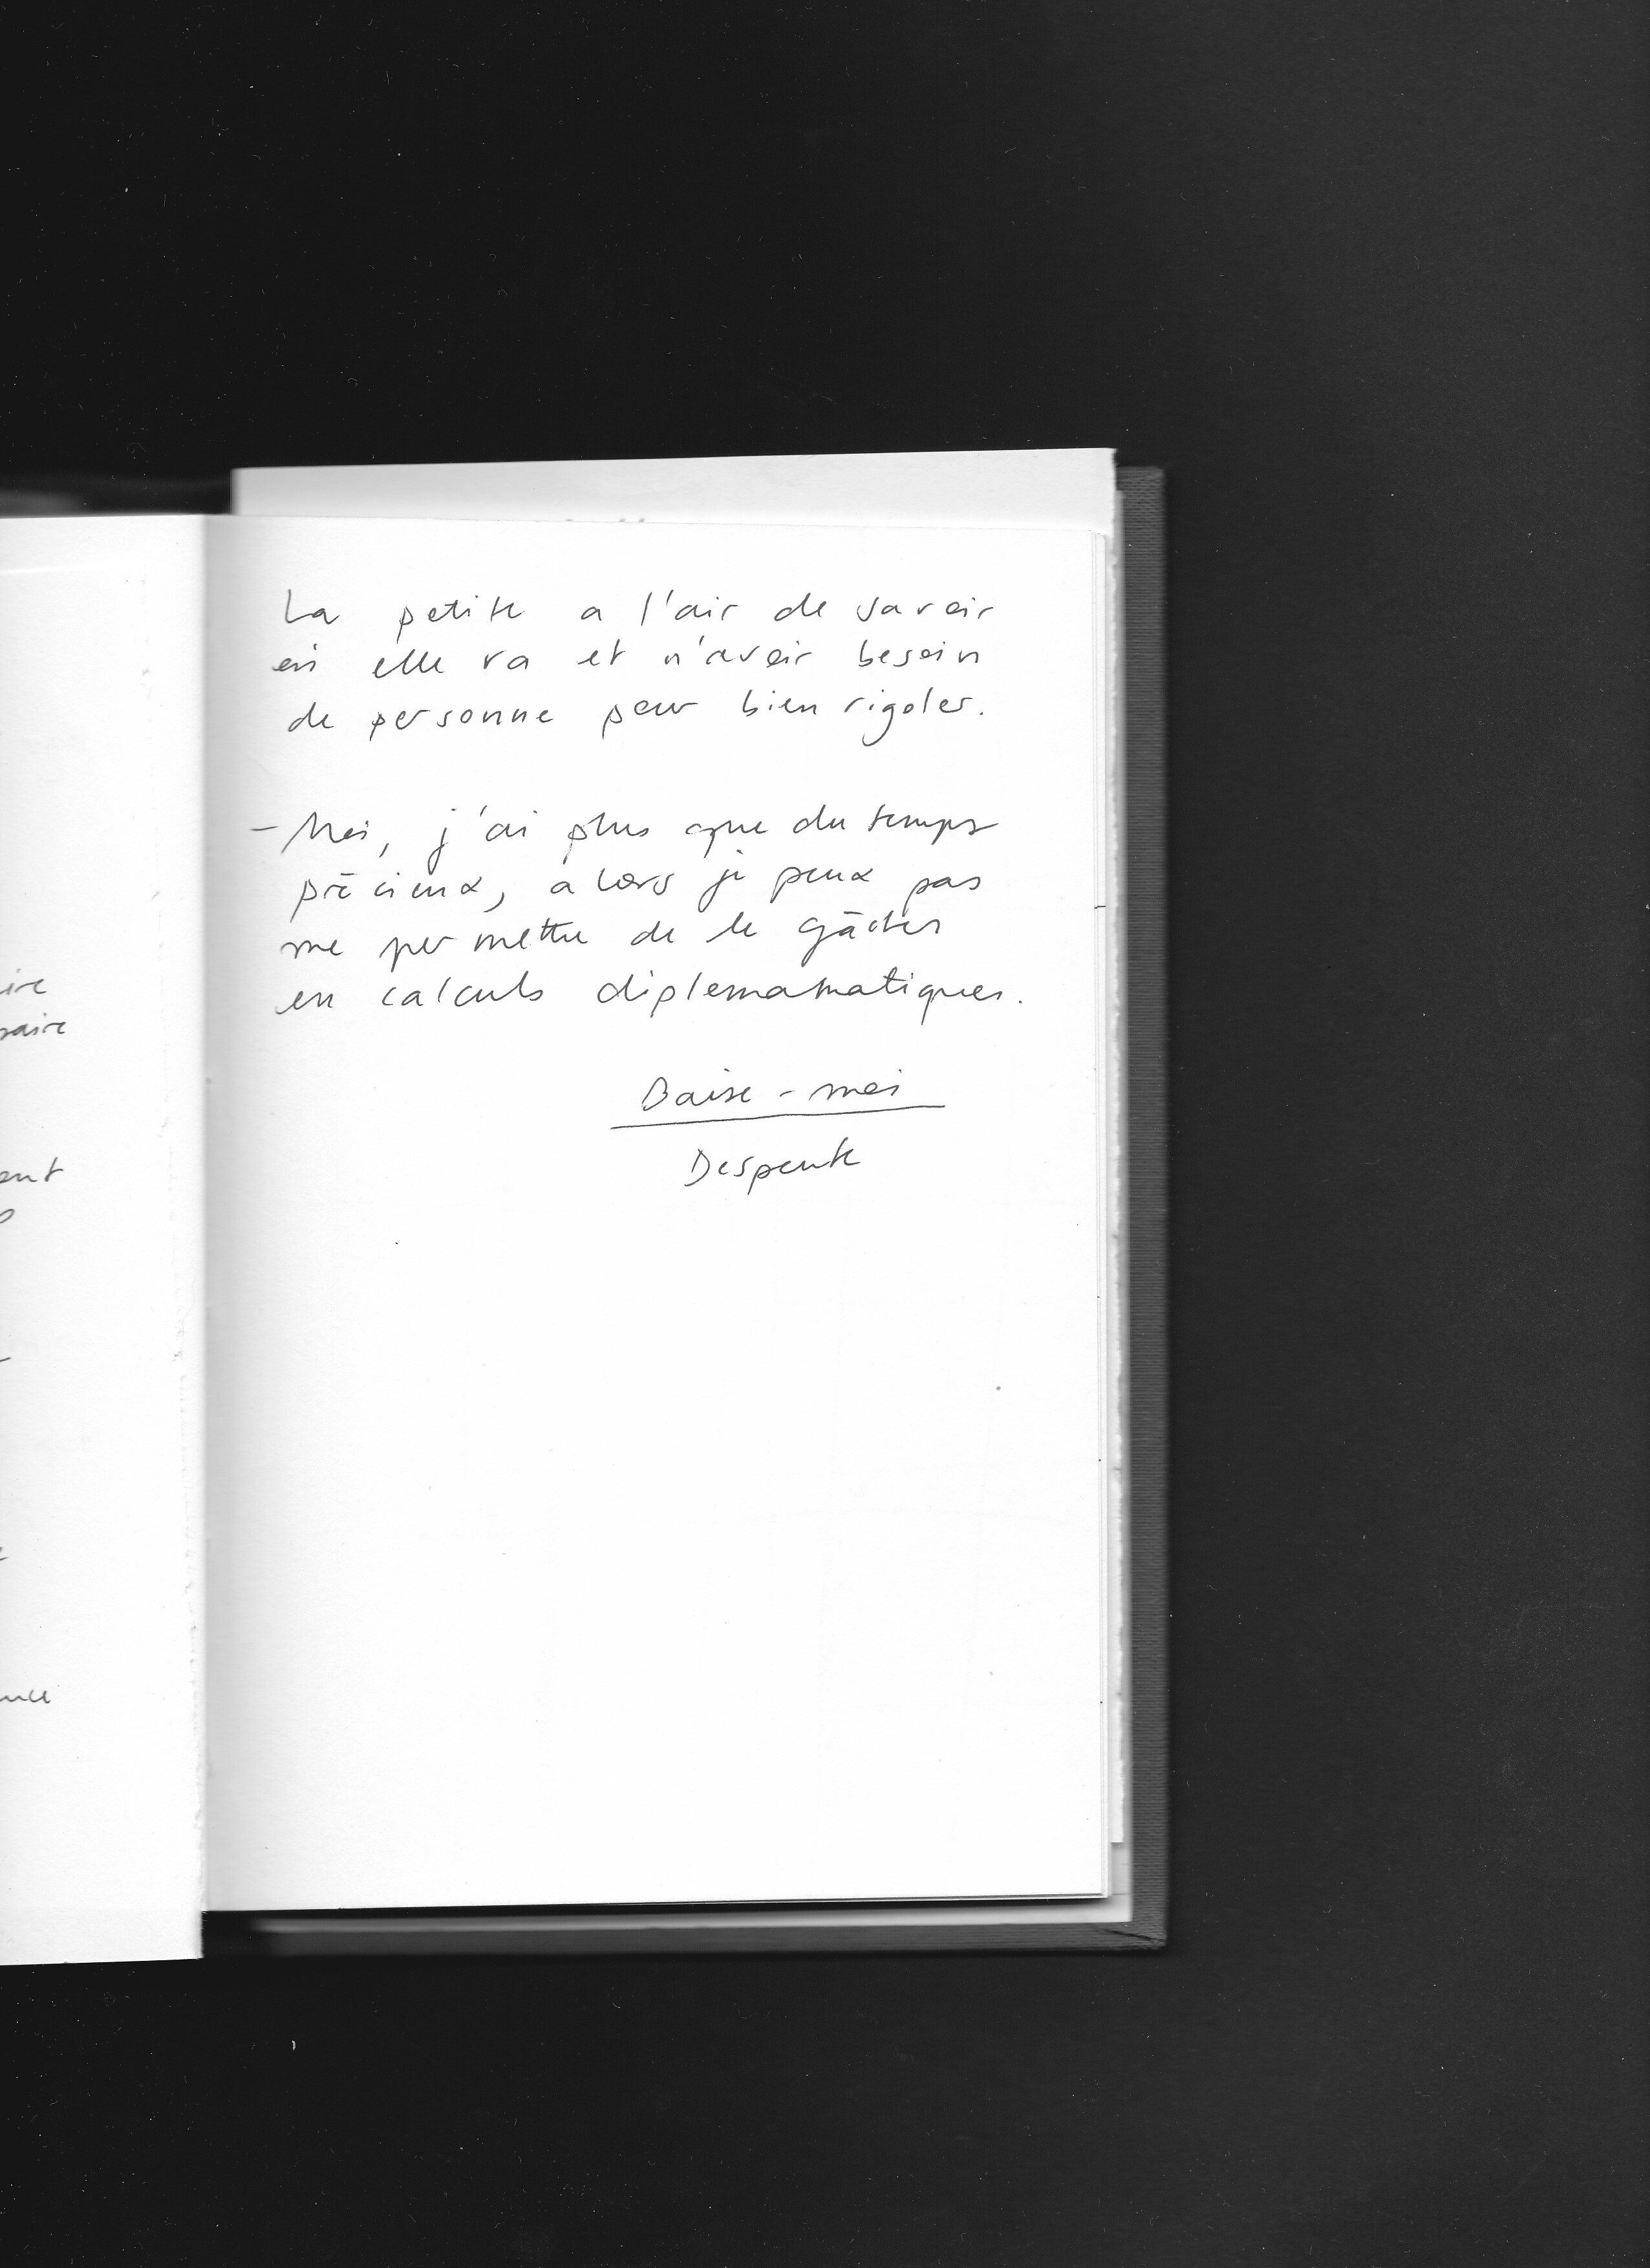 La petite a l'air de savoir
où elle va et n'avoir besoin
de personne pour bien rigoler.
- Moi, j'ai plus que du temps
précieux, alors je peux pas
me permettre de le gâcher
en calculs diplomamatiques.
Baise-moi
Despente
ire
saire
ent
nce